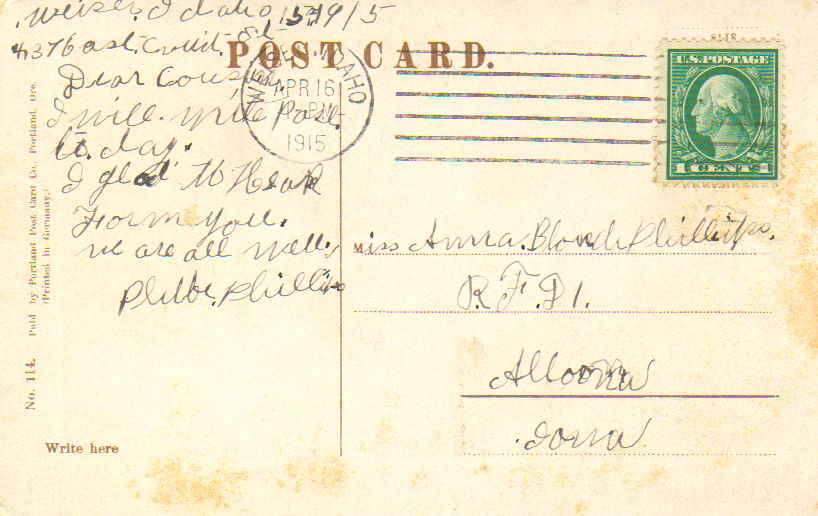 Weiser. Idaho 15 1915
437 East. Court. St
POST CARD.
Dear Cousin
I will write Post
to day.
I glad to Hear
Form you.
we are all well.
Phillips
WEISER IDAHO
APR 16
1915
U.S. POSTAGE
1 CENT 1
Miss Anna. Blond Phillips.
R. F. D 1.
Altoona
Iowa
No. 114. Publ by Portland Post Card Co. Portland, Ore.
(Printed in Germany.)
Write here